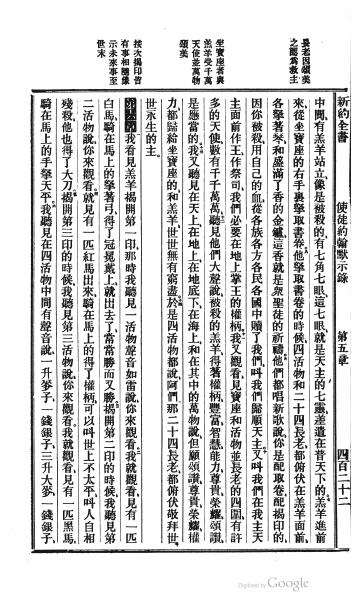 新約全書　使徒約翰默示錄　第五章　四百二十二
長老因頌美
之爲爲救主
坐寶座者與
羔羊受千萬
天使並萬物
頌美
按次揭印皆
有事相隨像
示未來事至
世末
中間、有羔羊站立、像是被殺的、有七角七眼、這七眼、就是天主的七靈、差遣在普天下的、羔羊進前
來、從坐寶座的右手裏拏取書卷、他拏取書卷的時候、四活物和二十四長老、都俯伏在羔羊面前、
各拏著琴、和盛滿了香的金鑪、這香就是衆聖徒的祈禱、他們都唱新歌說、你是配取卷、配揭印的、
因你被殺、用自己的血、從各族各方各民各國中贖了我們、叫我們歸順天主、又叫我們在我主天
主面前作王、作祭司、我們必要在地上掌王的權柄、我又觀看、見寶座和活物並長老的四圍、有許
多的天使、數有千千萬萬、聽見他們大聲說、被殺的羔羊得著權柄、豐富、智慧、能力、尊貴、榮耀、頌讚、
是應當的、我又聽見在天上、在地上、在地底下、在海上、和在其中的萬物說、但願頌讚、尊貴、榮耀、權
力、都歸給坐寶座的、和羔羊、世世無有窮盡、於是四活物都說阿們、那二十四長老、都俯伏敬拜世
世永生的主、
第六章　我看見羔羊揭開第一印、那時我聽見一活物、聲音如雷說、你來觀看、我就觀看、見有一匹
白馬、騎在馬上的拏著弓、得了冠冕戴上、就出去了、常常勝而又勝、揭開第二印的時候、我聽見第
二活物說、你來觀看、就見有一匹紅馬出來、騎在馬上的得了權柄、可以叫世上不太平、叫人自相
殘殺、他也得了大刀、揭開第三印的時候、我聽見第三活物說、你來觀看、我就觀看、見有一匹黑馬、
騎在馬上的手拏天平、我聽見在四活物中間有聲音說、一升麥子、一錢銀子、三升大麥、一錢銀子、
Digitized by Google